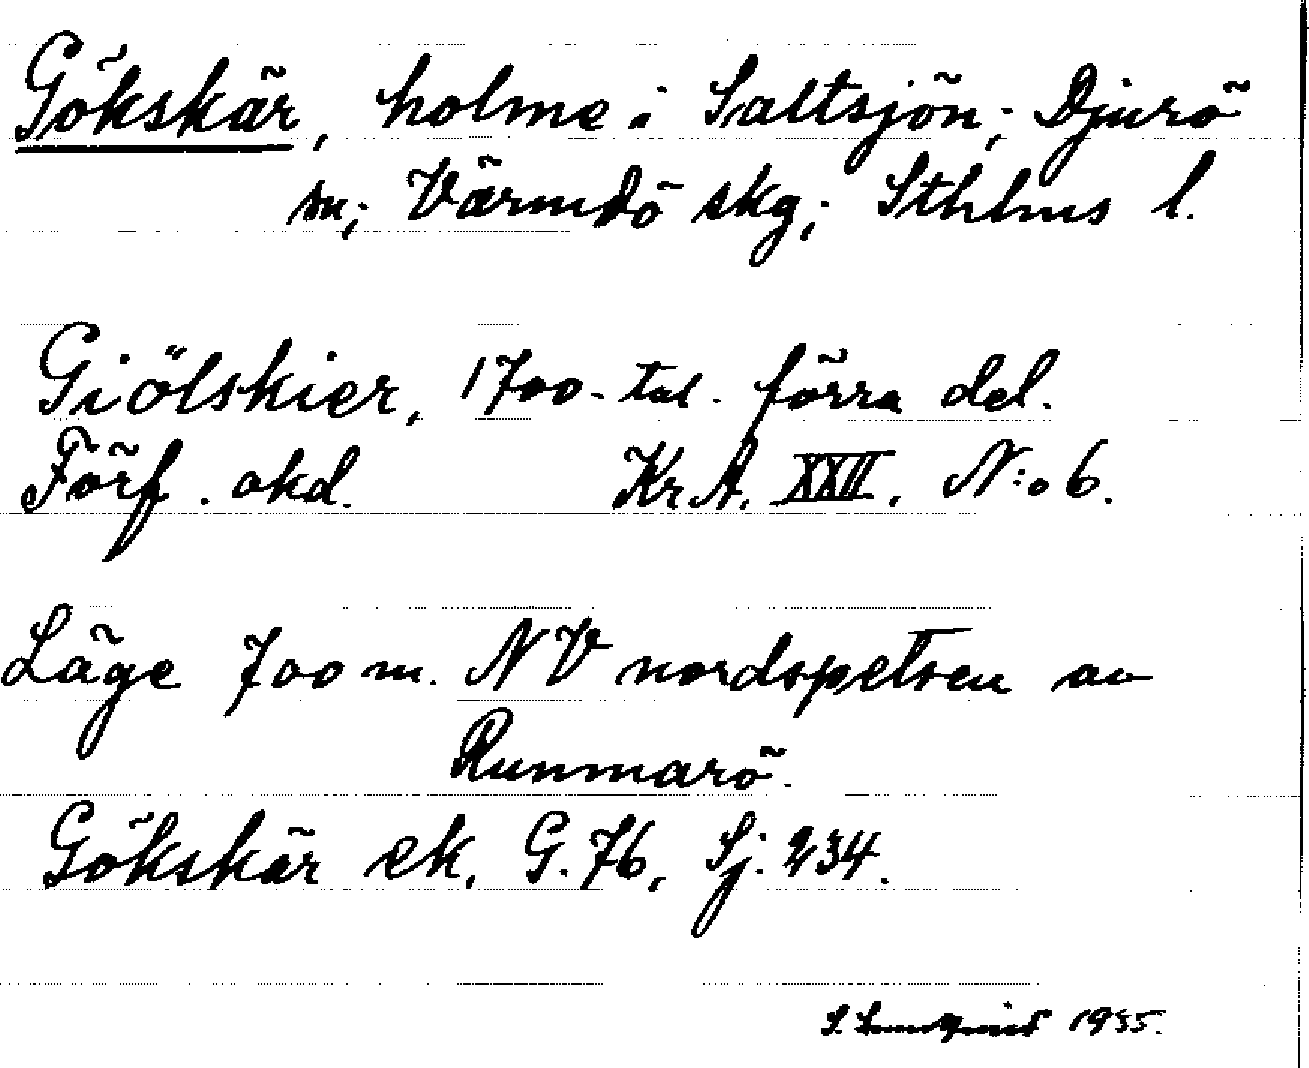 Gökskär, holme i Saltsjön; Djurö
sn; Värmdö skg; Sthlms l.
Giölskier, 1700-tal. förra del.
Förf. okd. KrA. XXII. N:o 6.
Läge 700 m. NV nordspetsen av
Runmarö.
Gökskär ek. G.76, Sj. 234.
S. 1935.